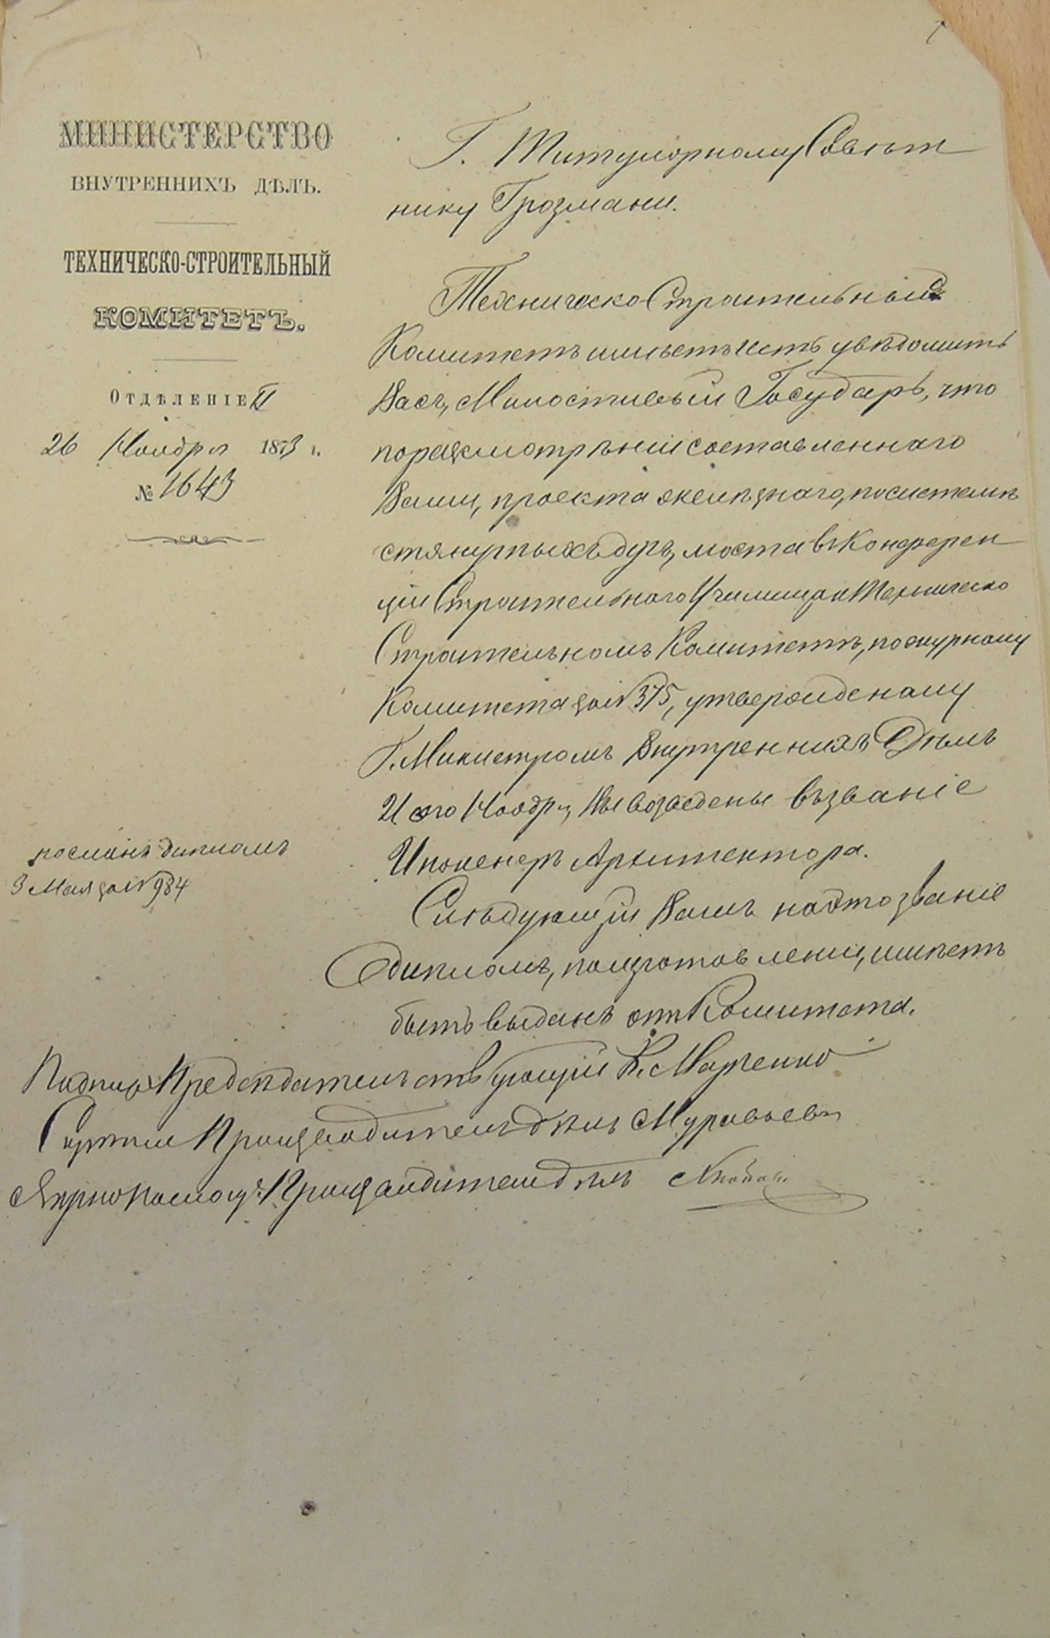 МИНИСТЕРСТВО
ВНУТРЕННИХЪ ДѢЛЪ.
ТЕХНИЧЕСКО-СТРОИТЕЛЬНЫЙ
КОМИТЕТЪ.
ОТДѢЛЕНІЕ II
26 Ноября 1873 г.
№ 1643
посланъ дипломъ
3 Мая за № 984
Г. Титулярному Совѣт
нику Грозмани.
Техническо Строительный
Комитетъ имѣетъ честь увѣдомить
Васъ, Милостивый Государь, что
по разсмотрѣніи составленнаго
Вами, проекта эскизнаго, по системѣ
стянутыхъ дугъ, моста въ Конферен
ціи Строительнаго Училища и Техническо
Строительномъ Комитетѣ, по журналу
Комитета за № 375, утвержденному
Г. Министромъ Внутреннихъ Дѣлъ
21 сего Ноября, Вы возведены въ званіе
Инженеръ Архитектора.
Слѣдующій Вамъ на это званіе
дипломъ, по изготовленіи, имѣетъ
быть выданъ отъ Комитета.
Подпис. Предсѣдательствующій К. Марченко
Скрѣпилъ Производитель дѣлъ Муравьевъ
Вѣрно Помощ. Производителя дѣлъ